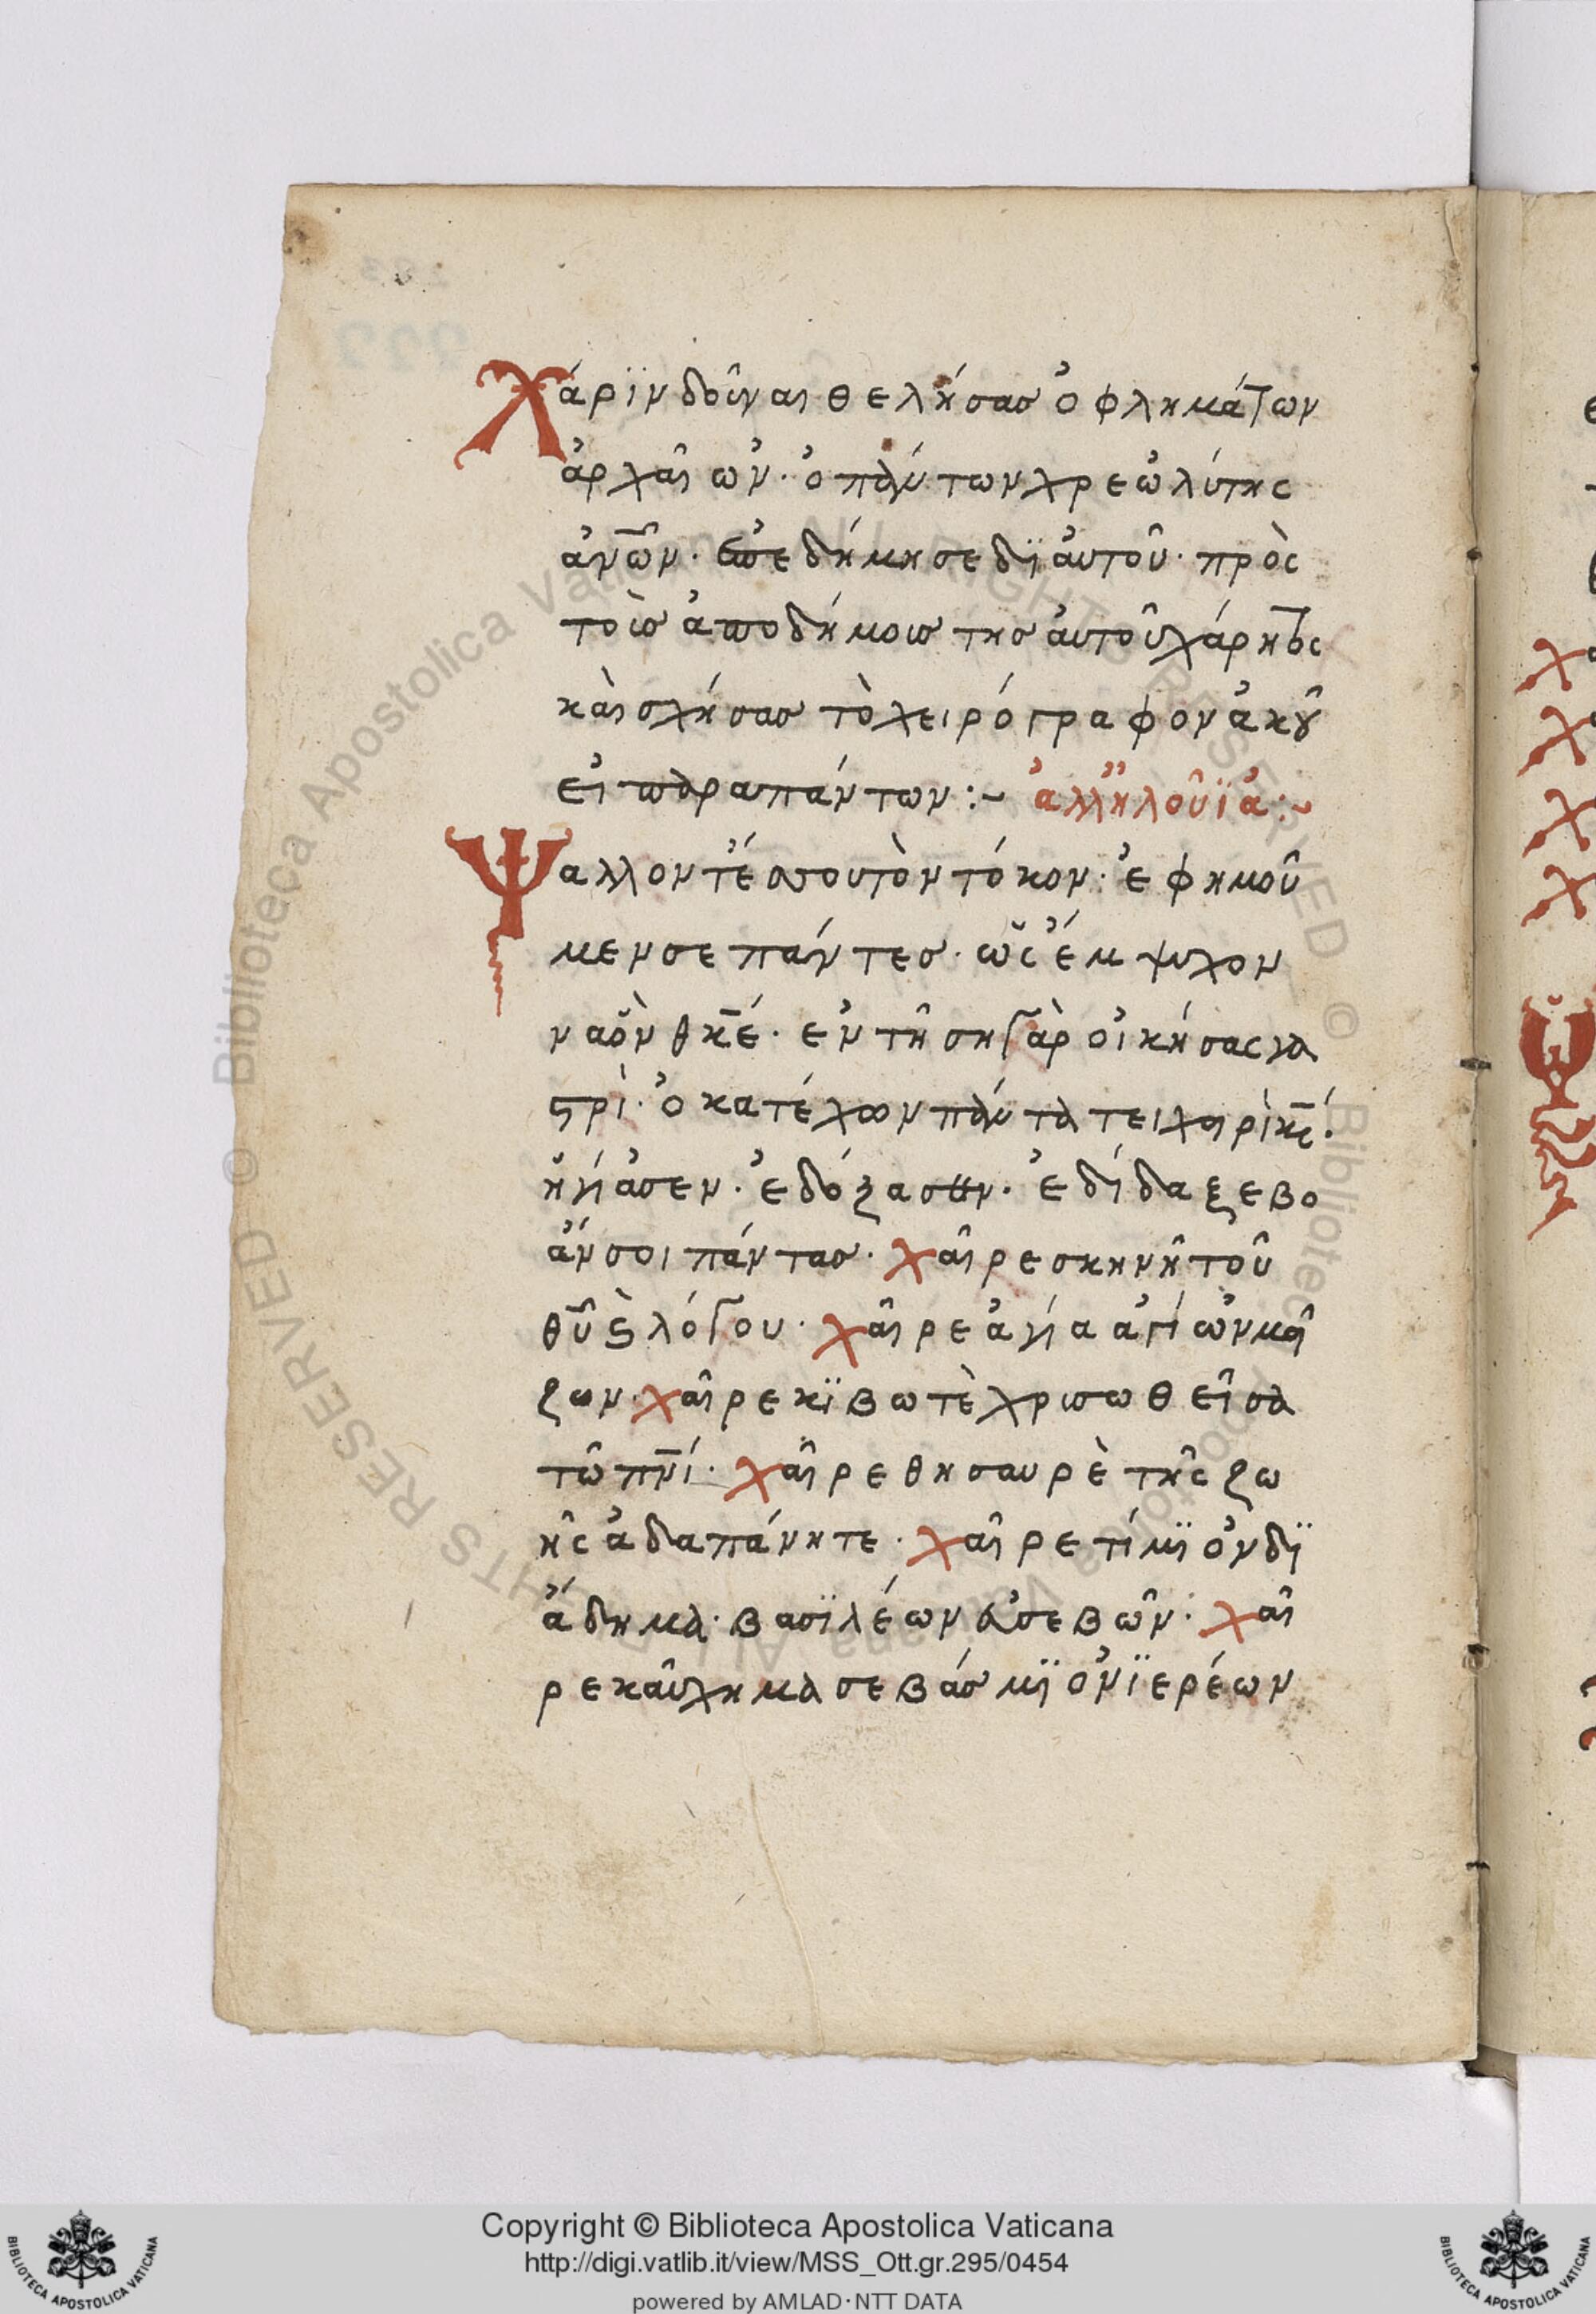 Χάρϊν δοῦναι θελήσας ὀφλημάτων
ἀρχαῖ ὠν· ὁ πάντων χρεὠλύτης
ἀνῶν· ἐπεδήμησε δϊ ἀυτοῦ· πρὸς
τοὶς ἀποδήμοις της ἀυτοῦ χάρητος
κὰι σχήσας τὸ χειρόγραφον ἀκού
ει παρα πάντων :~ ἀλληλοῦϊἀ:~
Ψαλλοντές σου τὸν τόκον· ἐφημοῦ
μεν σε πάντες· ὡς ἔμψυχον
ναὸν θκ̅έ· εν τῆ ση γὰρ οἰκήσας γα
στρὶ· ὁ κατέχων πάντα τει χειρὶ κ̅ς·
ἡγίασεν· ἐδόξασεν· ἐδίδαξε βο
ἀν σοι πάντας· χαῖρε σκηνῆ τοῦ
θῦ ϗ λόγου· χαῖρε ἁγία ἁγίων μεῖ
ζων· χαῖρε κϊβωτὲ χρισωθεῖσα
τῶ πν̅ί· χαῖρε θησαυρὲ τῆς ζω
ῆς ἀδαπάνητε· χαῖρε τίμϊον δϊ
άδημα· βασϊλέων ἐυσεβῶν· χαῖ
ρε καῦχημα σεβάσμϊον ϊερέων
Copyright © Biblioteca Apostolica Vaticana
http://digi.vatlib.it/view/MSS_Ott.gr.295/0454
powered by AMLAD·NTT DATA